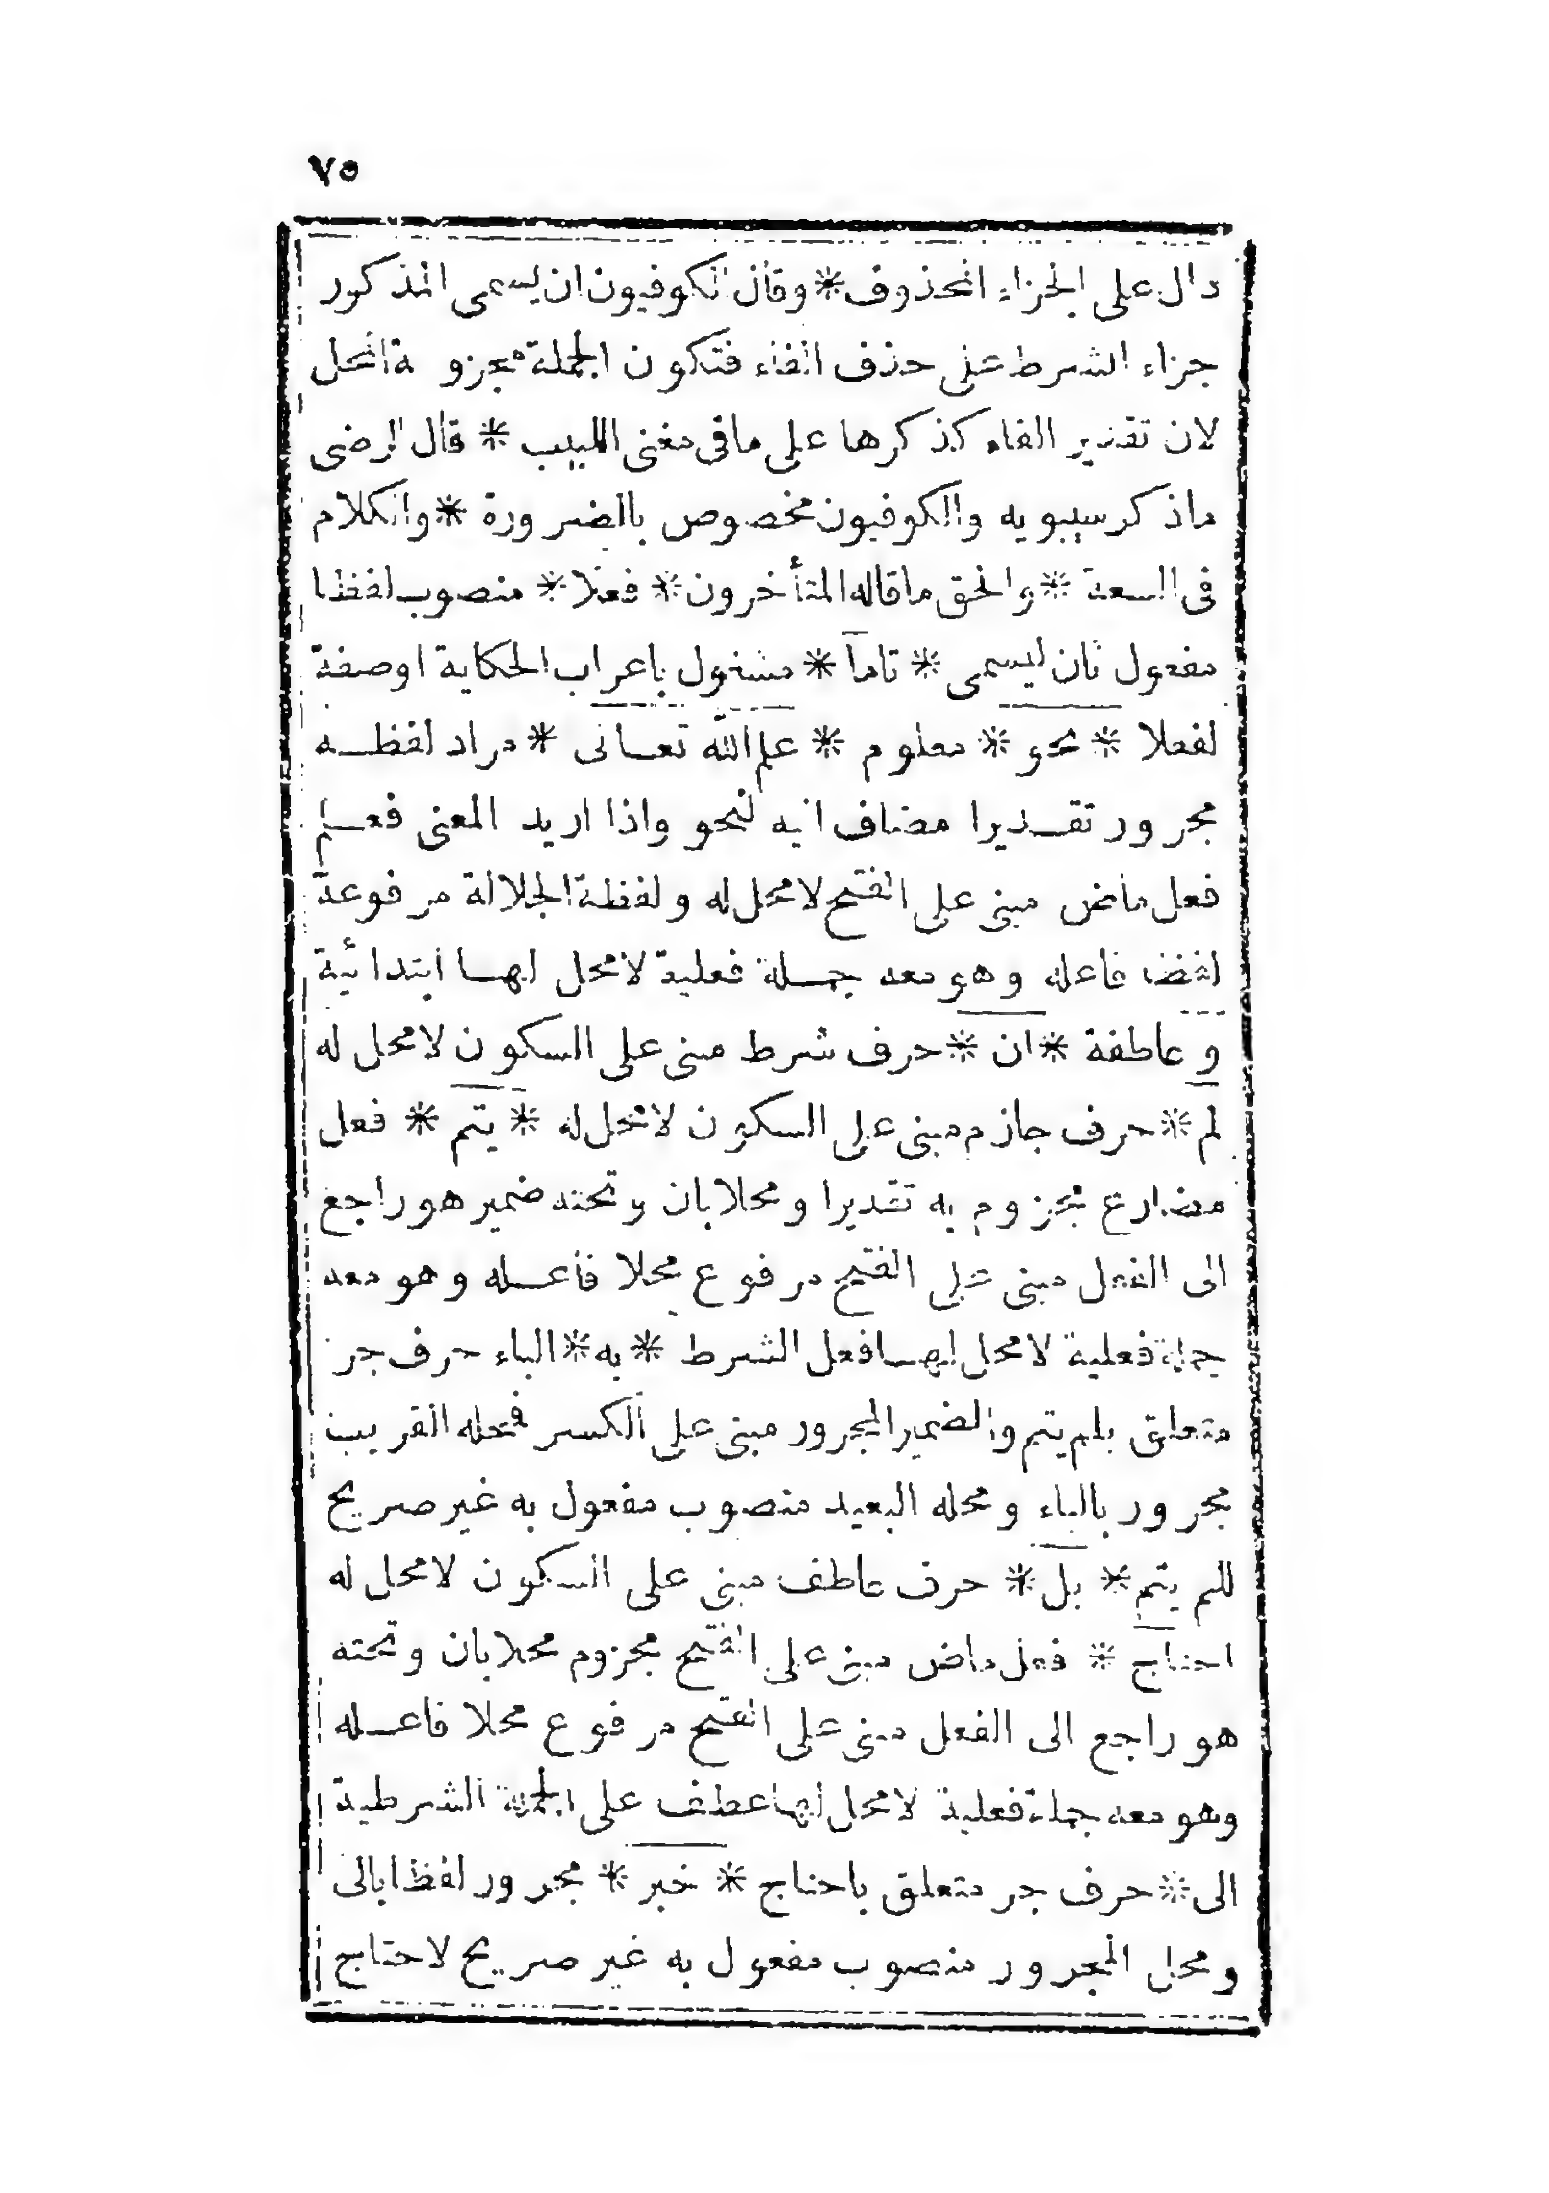 ٧٥
دال على الجزاء المحذوف * وقال الكوفيون ان يسمى المذكور
جزاء الشرط على حذف الفاء فتكون الجملة مجزومة المحل
لان تقدير الفاء كذكرها على ما فى مغنى اللبيب * قال الرضى
ماذكر سيبويه والكوفيون مخصوص بالضرورة * والكلام
فى السعة * والحق ماقاله المتأخرون * فعلا * منصوب لفظا
مفعول ثان ليسمى * تاما * مشغول باعراب الحكاية اوصفة
لفعلا * نحو * معلوم * علم الله تعالى * مراد لفظه
مجرور تقديرا مضاف اليه لنحو واذا اريد المعنى فعلم
فعل ماض مبنى على الفتح لامحل له ولفظة الجلالة مرفوعة
لفظا فاعله وهو معه جملة فعلية لامحل لها ابتدائية
و عاطفة * ان * حرف شرط مبنى على السكون لامحل له
لم * حرف جازم مبنى على السكون لامحل له * يتم * فعل
مضارع مجزوم به تقديرا ومحلا بان وتحته ضمير هو راجع
الى الفعل مبنى على الفتح مرفوع محلا فاعله وهو معه
جملة فعلية لامحل لها فعل الشرط * به * الباء حرف جر
متعلق بلم يتم والضمير المجرور مبنى على الكسر فمحله القريب
مجرور بالباء ومحله البعيد منصوب مفعول به غير صريح
للم يتم * بل * حرف عاطف مبنى على السكون لامحل له
احتاج * فعل ماض مبنى على الفتح مجزوم محلا بان وتحته
هو راجع الى الفعل مبنى على الفتح مرفوع محلا فاعله
وهو معه جملة فعلية لامحل لها عطف على الجملة الشرطية
الى * حرف جر متعلق باحتاج * خبر * مجرور لفظا بالى
ومحل المجرور منصوب مفعول به غير صريح لاحتاج